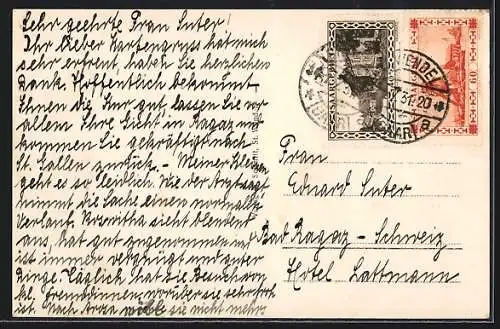 Sehr geehrte Frau Suter!
Ihr lieber Kartengruss hat mich
sehr erfreut, haben Sie herzlichen
Dank. Hoffentlich bekommt
Ihnen die Kur gut, lassen Sie vor
allem Ihre Gicht in Ragaz und
kommen Sie gekräftigt nach
St. Gallen zurück. - Meiner Kleinen
geht es so leidlich. Wie der Arzt sagt
nimmt die Sache einen normalen
Verlauf. Roswitha sieht blendend
aus, hat gut zugenommen und
ist immer vergnügt und guter
Dinge. Täglich hat sie Besuch von
Freundinnen, worüber sie sehr froh
ist. Nach Arosa will sie nicht mehr.
SAARGEBIET
60
31.20
a
Frau
Eduard Suter
Bad Ragaz - Schweiz
Hotel Lattmann